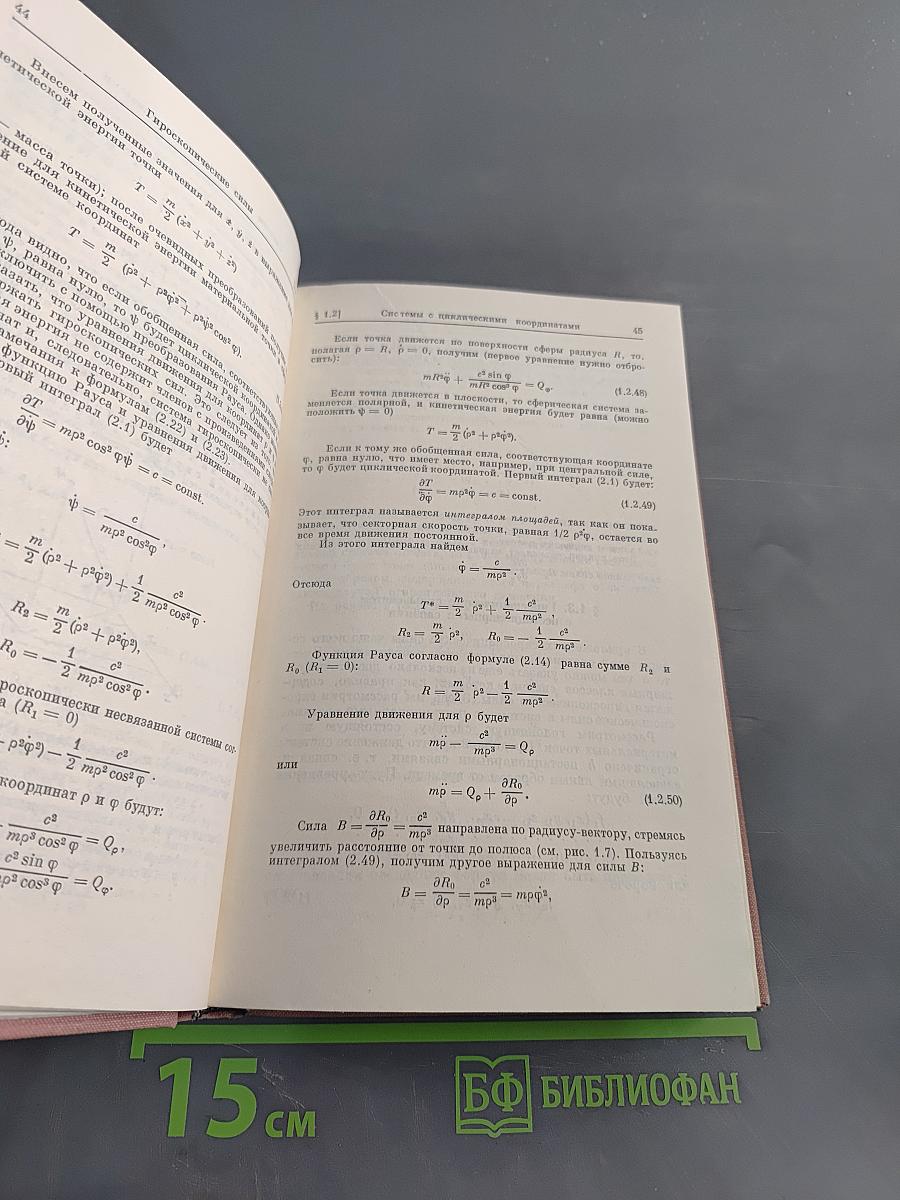 44
Гироскопические силы
Внесем полученные значения для ẋ, ẏ, ż в
кинетической энергии точки
T = m/2 (ẋ² + ẏ² + ż²)
— масса точки); после очевидных преобразований
для кинетической энергии материальной
системе координат
T = m/2 (ρ̇² + ρ²φ̇² + ρ²ψ̇² cos² φ).
видно, что если обобщенная сила,
ψ, равна нулю, то ψ будет циклической
с помощью преобразования Рауса.
что уравнения движения для координат
гироскопических сил. Это следует из
энергия не содержит членов с произведениями
и, следовательно, система гироскопически
замечания к формулам (2.22) и (2.23).
функцию Рауса и уравнения движения для
интеграл (2.1) будет
∂T/∂ψ̇ = mρ² cos² φψ̇ = c = const.
ψ̇ = c/(mρ² cos² φ),
= m/2 (ρ̇² + ρ²φ̇²) + 1/2 c²/(mρ² cos² φ).
R₂ = m/2 (ρ̇² + ρ²φ̇²),
R₀ = − 1/2 c²/(mρ² cos² φ).
несвязанной системы
(R₁ = 0)
ρ²φ̇²) − 1/2 c²/(mρ² cos² φ).
координат ρ и φ будут:
c²/(mρ³ cos² φ) = Q_ρ,
c² sin φ/(mρ² cos³ φ) = Q_φ.
§ 1.2] Системы с циклическими координатами 45
Если точка движется по поверхности сферы радиуса R, то,
полагая ρ = R, ρ̇ = 0, получим (первое уравнение нужно отбро-
сить):
mR²φ̈ + c² sin φ/(mR² cos³ φ) = Q_φ. (1.2.48)
Если точка движется в плоскости, то сферическая система за-
меняется полярной, и кинетическая энергия будет равна (можно
положить ψ = 0)
T = m/2 (ρ̇² + ρ²φ̇²).
Если к тому же обобщенная сила, соответствующая координате
φ, равна нулю, что имеет место, например, при центральной силе,
то φ будет циклической координатой. Первый интеграл (2.1) будет:
∂T/∂φ̇ = mρ²φ̇ = c = const. (1.2.49)
Этот интеграл называется интегралом площадей, так как он пока-
зывает, что секторная скорость точки, равная 1/2 ρ²φ̇, остается во
все время движения постоянной.
Из этого интеграла найдем
φ̇ = c/(mρ²).
Отсюда
T* = m/2 ρ̇² + 1/2 c²/(mρ²),
R₂ = m/2 ρ̇², R₀ = − 1/2 c²/(mρ²).
Функция Рауса согласно формуле (2.14) равна сумме R₂ и
R₀ (R₁ = 0):
R = m/2 ρ̇² − 1/2 c²/(mρ²).
Уравнение движения для ρ будет
mρ̈ − c²/(mρ³) = Q_ρ
или
mρ̈ = Q_ρ + ∂R₀/∂ρ. (1.2.50)
Сила B = ∂R₀/∂ρ = c²/(mρ³) направлена по радиусу-вектору, стремясь
увеличить расстояние от точки до полюса (см. рис. 1.7). Пользуясь
интегралом (2.49), получим другое выражение для силы B:
B = ∂R₀/∂ρ = c²/(mρ³) = mρφ̇²,
15 см
БФ БИБЛИОФАН